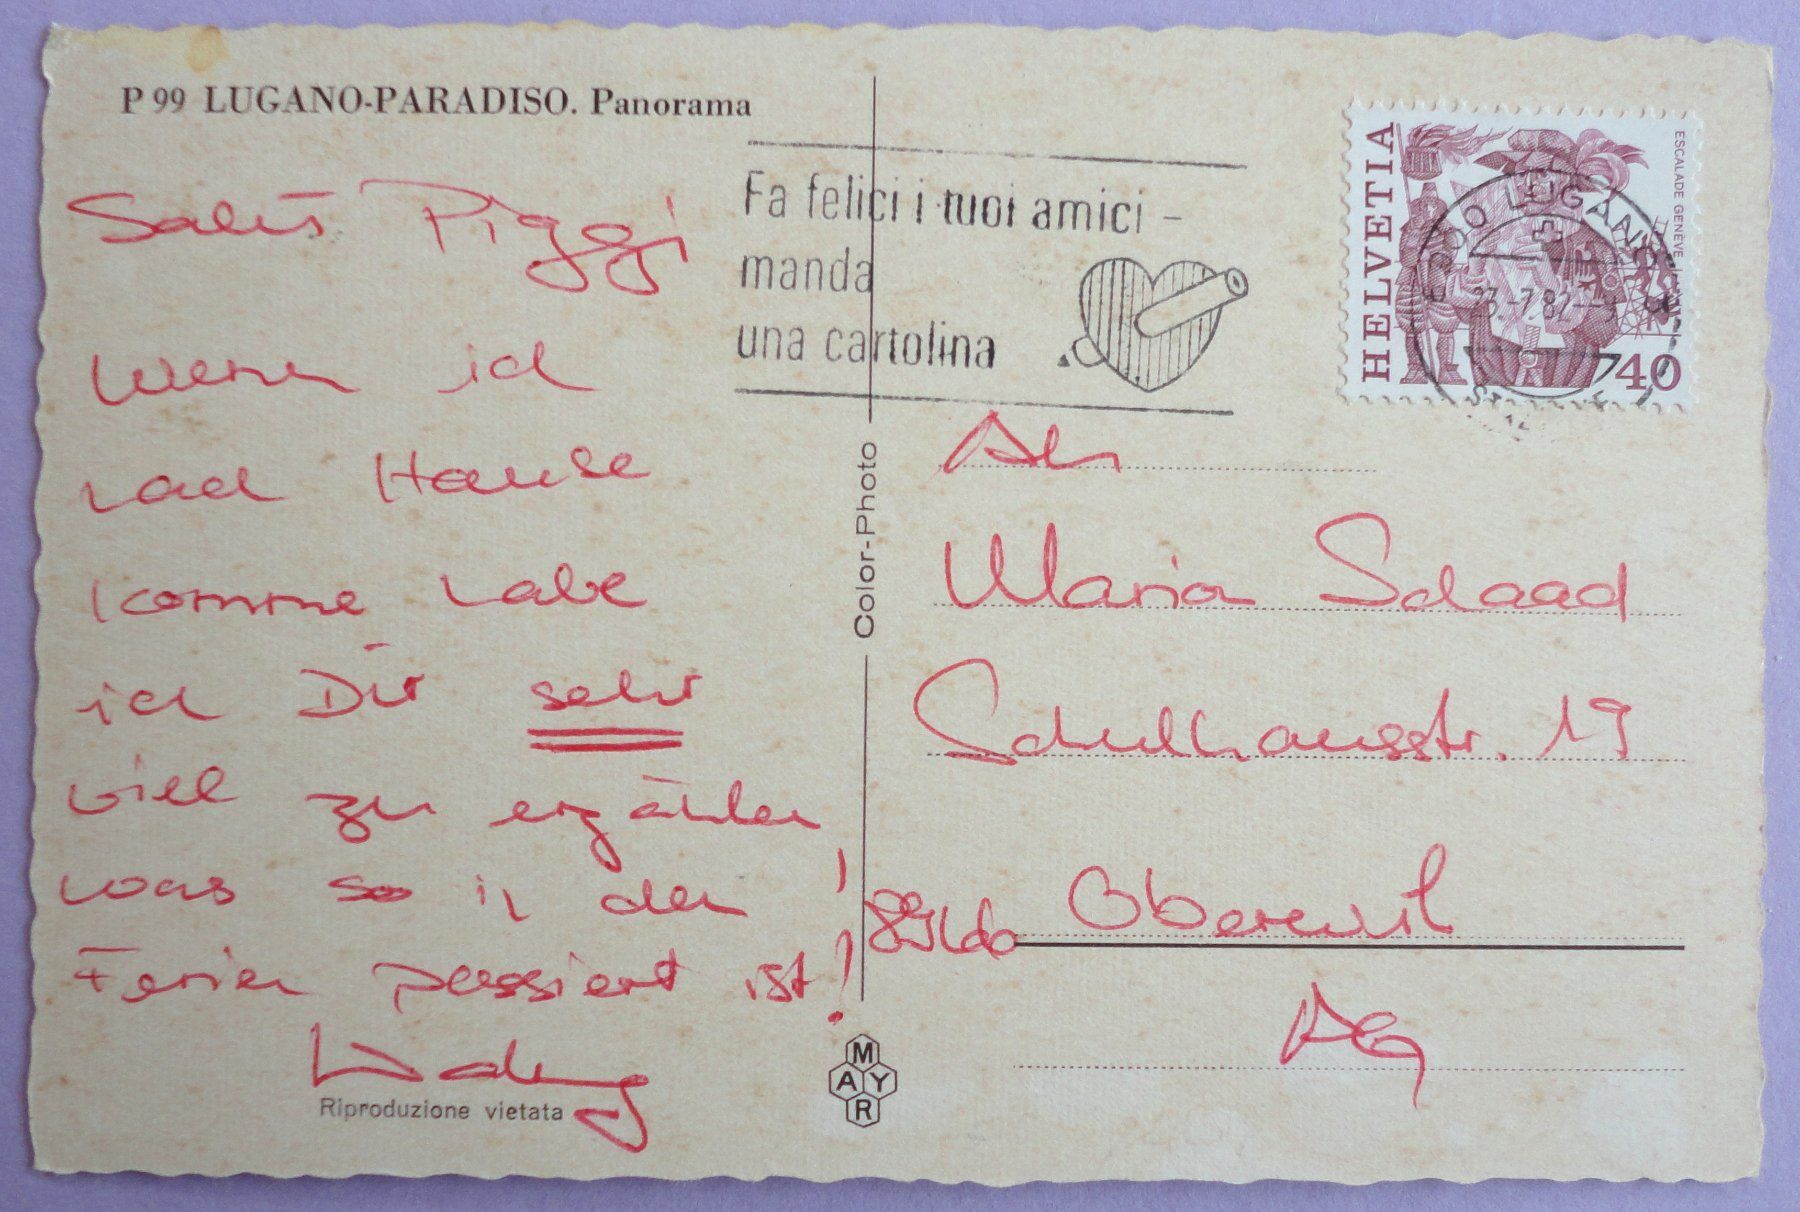 P 99 LUGANO-PARADISO. Panorama
Salüs Piggi
Wenn ich
nach Hause
komme habe
ich Dir sehr
viel zu erzählen
was so in den
Ferien passiert ist!
Riproduzione vietata
Fa felici i tuoi amici –
manda
una cartolina
HELVETIA
ESCALADE GENÈVE
40
LUGANO
23.-7.82
Color-Photo
MAYR
An
Maria Schaad
Schulhausstr. 19
Oberwil
AG